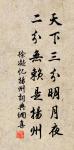 天下三分明月夜
二分無賴是揚州
徐凝憶揚州詞典網書